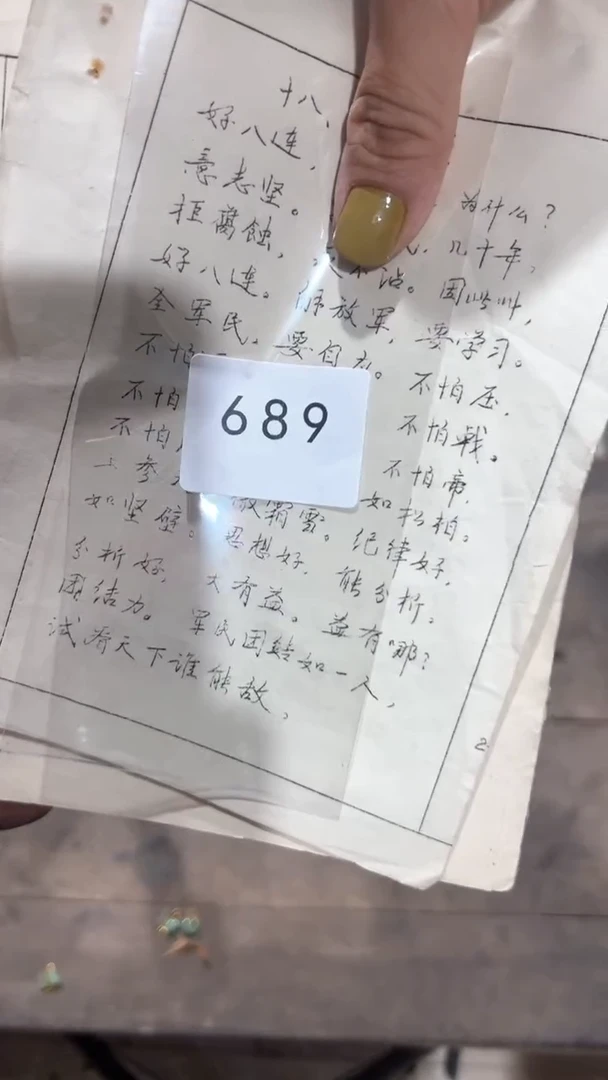 十八、
好八连, 为什么?
意志坚。 几十年,
拒腐蚀, 不沾。 因此叫,
好八连。 解放军, 要学习。
全军民, 要自立。 不怕压,
不怕 不怕戟。
不怕 不怕帝,
不怕 如松柏。
上参 傲霜雪。 纪律好,
如坚壁。 思想好, 能分析。
分析好, 大有益。 益有那?
团结力。 军民团结如一人,
试看天下谁能敌,
689
2